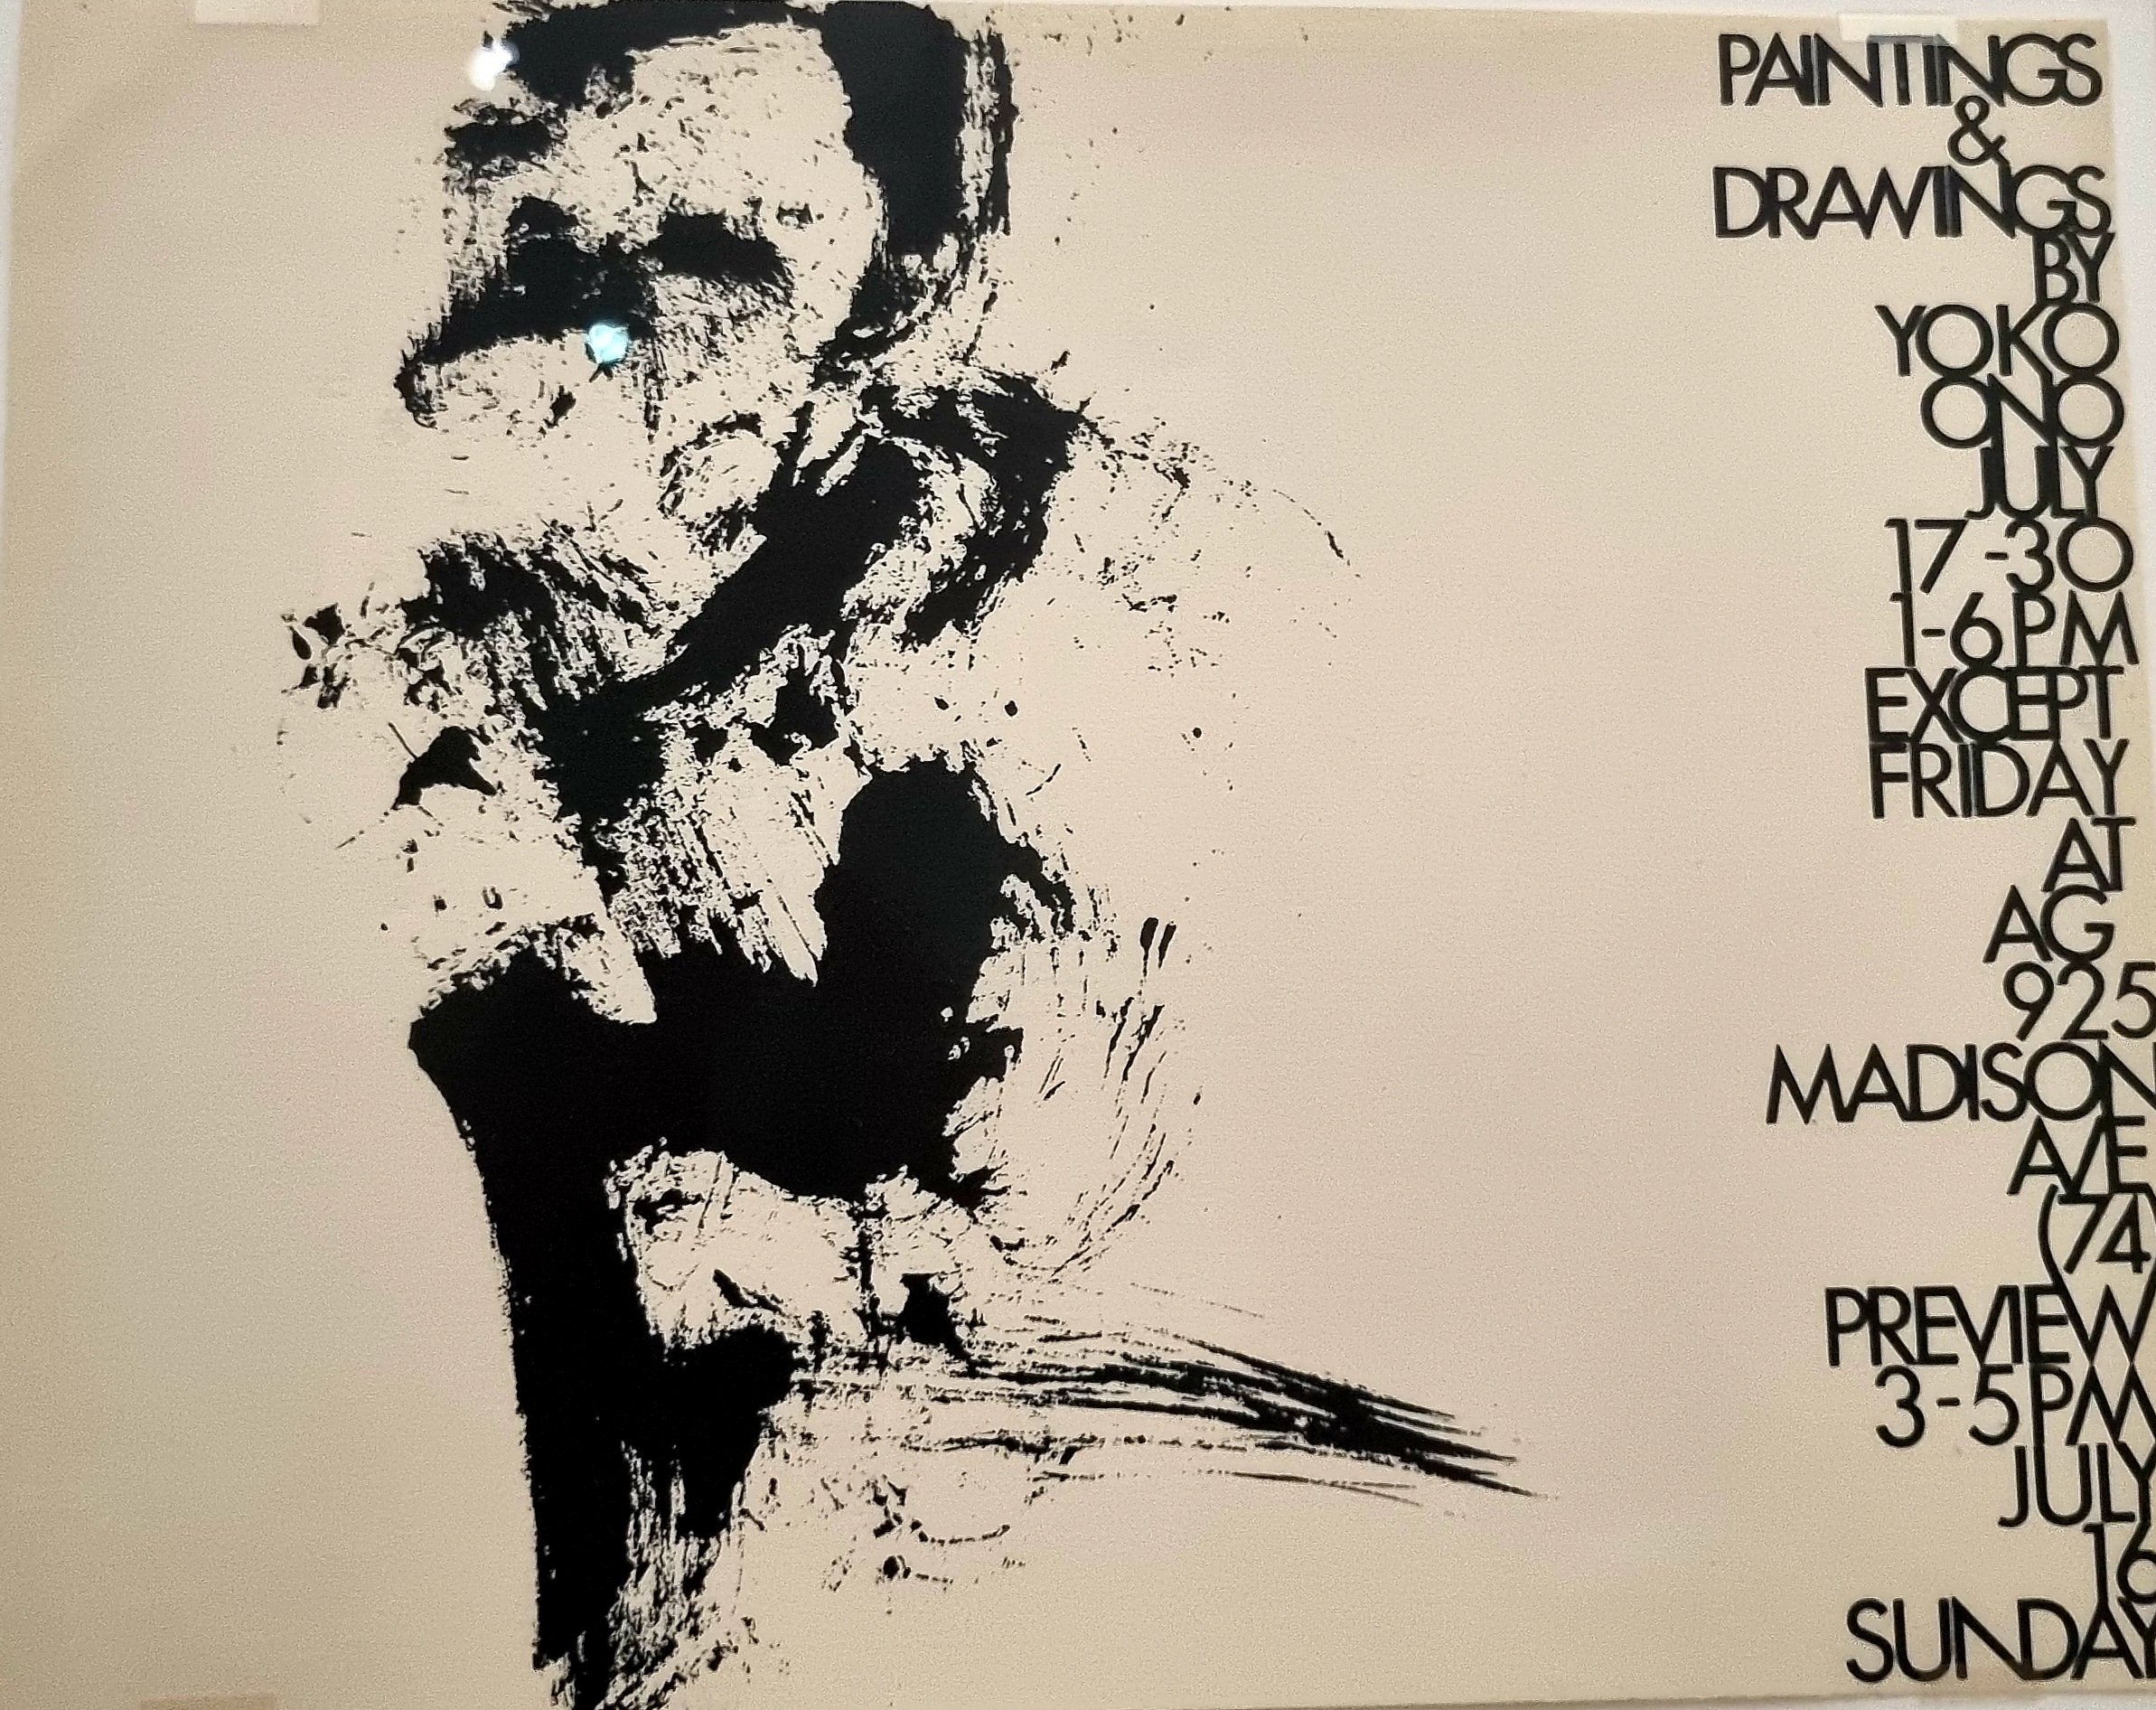 PAINTINGS
&
DRAWINGS
BY
YOKO
ONO
JULY
17-30
1-6 PM
EXCEPT
FRIDAY
AT
AG
925
MADISON
AVE
(74)
PREVIEW
3-5 PM
JULY
16
SUNDAY